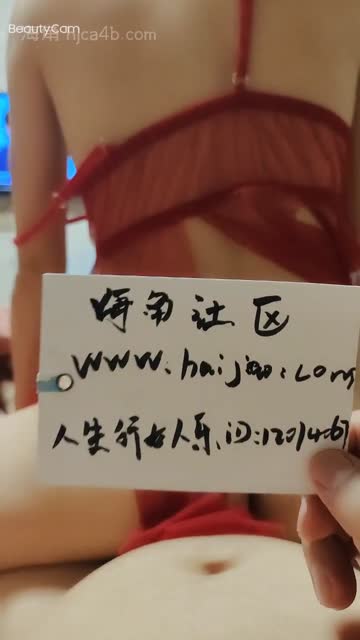 BeautyCam
海角 hjca4b.com
海角社区
www.haijiao.com
人生行女人乐,iD:1201467